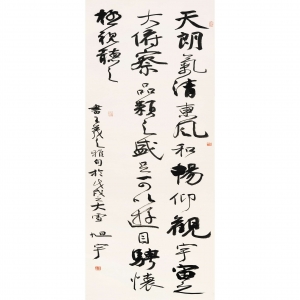 天朗氣清惠風和暢仰觀宇宙之
大俯察品類之盛足可以遊目騁懷
極視聽之
書王羲之雅句於戊戌之大雪旭宇